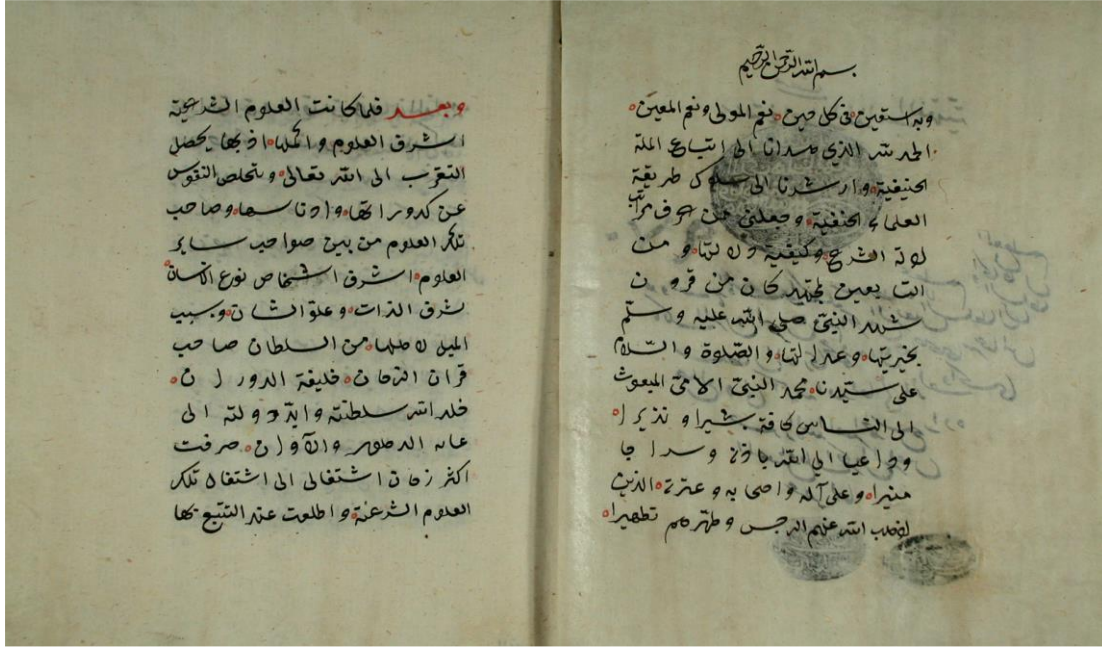 بسم الله الرحمن الرحيم
وبه استعين في كل حين نعم المولى ونعم المعين
الحمد لله الذي هدانا الى اتباع الملة
الحنيفية وارشدنا الى سلوك طريقة
العلماء الحنفية وجعلني من
لادلة الشرع وكيفية دلالتها ومن
التابعين لمجتهد كان من قرون
شهد النبي صلى الله عليه وسلم
بخيريتها وعدالتها والصلوة والسلام
على سيدنا محمد النبي الامي المبعوث
الى الناس كافة بشيرا ونذيرا
وداعيا الى الله باذنه وسراجا
منيرا وعلى آله واصحابه وعترته الذين
اذهب الله عنهم الرجس وطهرهم تطهيرا
وبعد فلما كانت العلوم الشرعية
اشرف العلوم واكملها اذ بها يحصل
التقرب الى الله تعالى ويتخلص النفوس
عن كدوراتها وادناسها وصاحب
تلك العلوم من بين صواحب ساير
العلوم اشرف اشخاص نوع الانسان
لشرف الذات وعلو الشان وبسبب
الميل لاهلها من السلطان صاحب
قران الزمان خليفة الدوران
خلد الله سلطنته وايد دولته الى
الدهور والآوان صرفت
اكثر زمان اشتغالى الى اشتغال تلك
العلوم الشرعية واطلعت عند التتبع بها